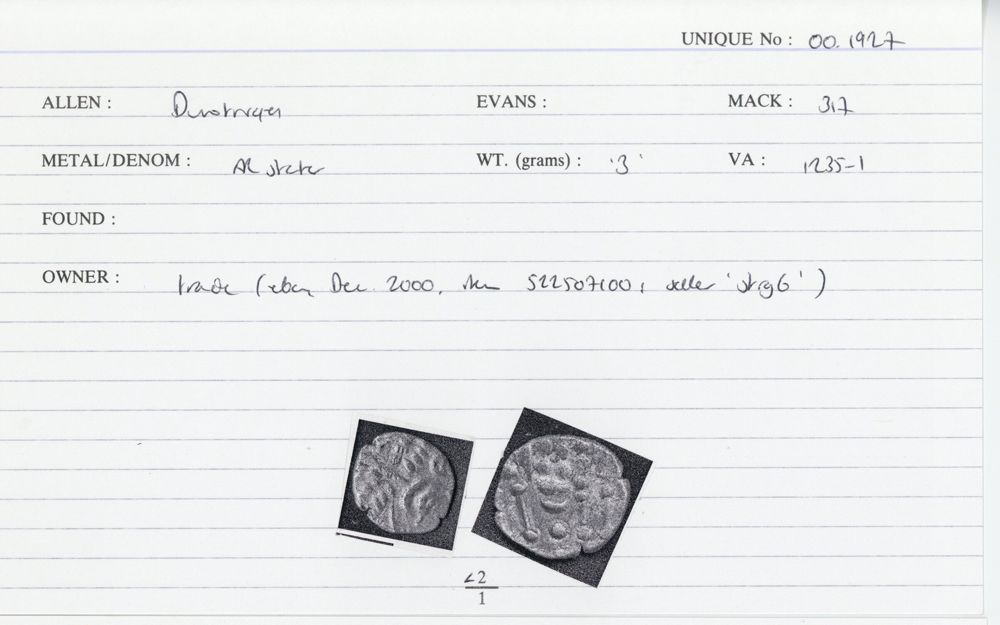 UNIQUE No : 00.1927
ALLEN : Durotriges EVANS : MACK : 317
METAL/DENOM : AR stater WT. (grams) : '3' VA : 1235-1
FOUND :
OWNER : trade (ebay Dec. 2000, item 522507100, seller 'strg6')
<2
1